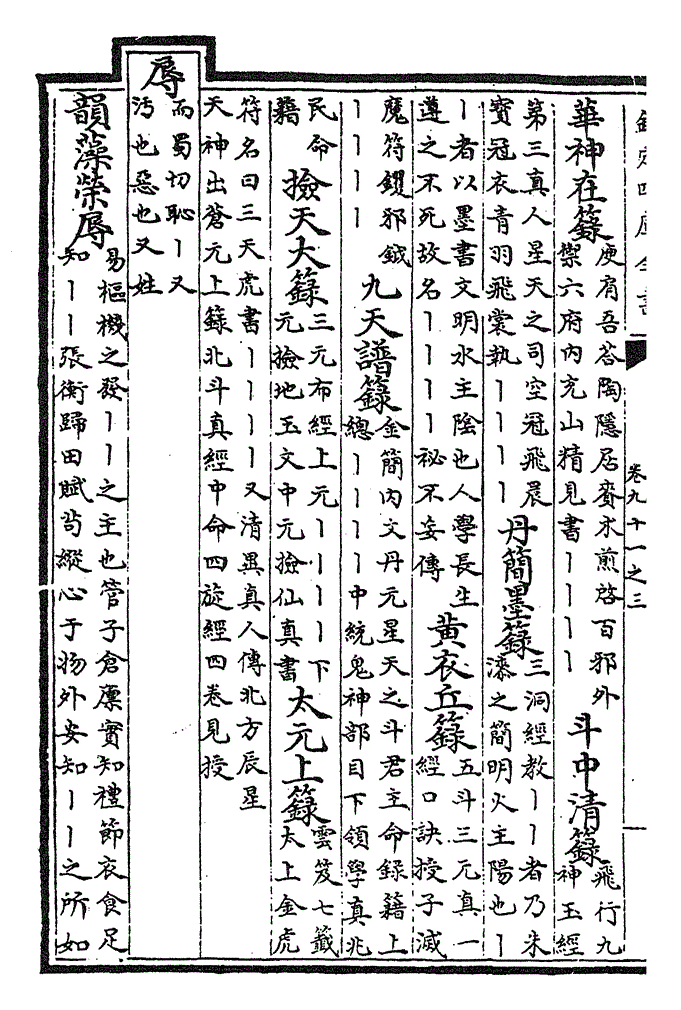 欽定四庫全書
卷九十一之三
華神在籙
庾肩吾荅陶隱居賚朮煎啓百邪外
禦六府内充山精見書丨丨丨丨
斗中清籙
飛行九
神玉經
第三真人星天之司空冠飛晨
寶冠衣青羽飛裳執丨丨丨丨
丹簡墨籙
三洞經教丨丨者乃朱
漆之簡明火主陽也丨
丨者以墨書文明水主陰也人學長生
遵之不死故名丨丨丨丨祕不妄傳
黄衣丘籙
五斗三元真一
經口訣授子滅
魔符鐶邪鉞
丨丨丨丨
九天譜籙
金簡内文丹元星天之斗君主命錄籍上
總丨丨丨丨中統鬼神部目下領學真兆
民命
籍
撿天大籙
三元布經上元丨丨丨丨下
元撿地玉文中元撿仙真書
太元上籙
雲笈七籤
太上金虎
符名曰三天虎書丨丨丨丨又清異真人傳北方辰星
天神出蒼元上籙北斗真經中命四旋經四卷見授
辱
而蜀切恥丨又
汚也惡也又姓
韻藻榮辱
易樞機之發丨丨之主也管子倉廩實知禮節衣食足
知丨丨張衡歸田賦茍縱心于物外安知丨丨之所如